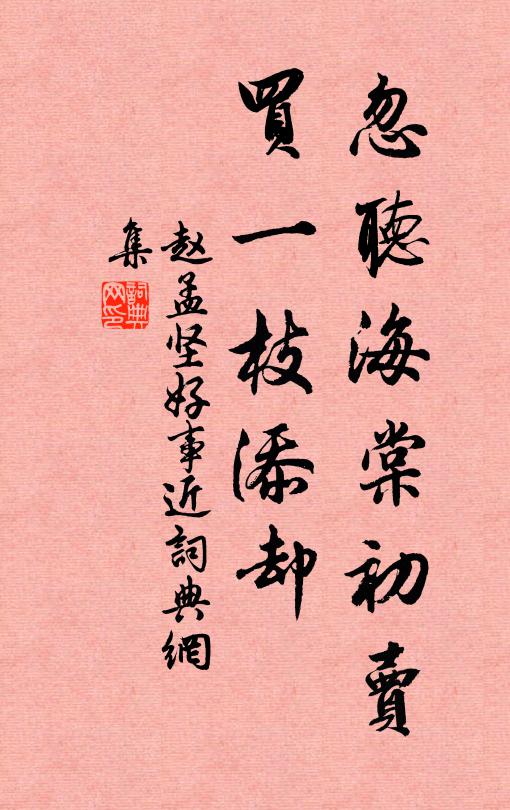 忽聽海棠初賣
買一枝添却
赵孟坚好事近詞典網
集
詞典
网印